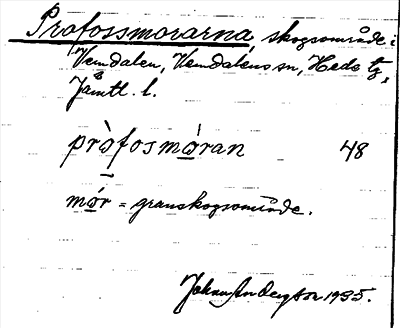 Profossmorarna, skogsområde i
Vemdalen, Vemdalens sn, Hede tg,
Jämtl. l.
pròfosmóran 48
mór = granskogsområde.
Johan Andersson 1935.